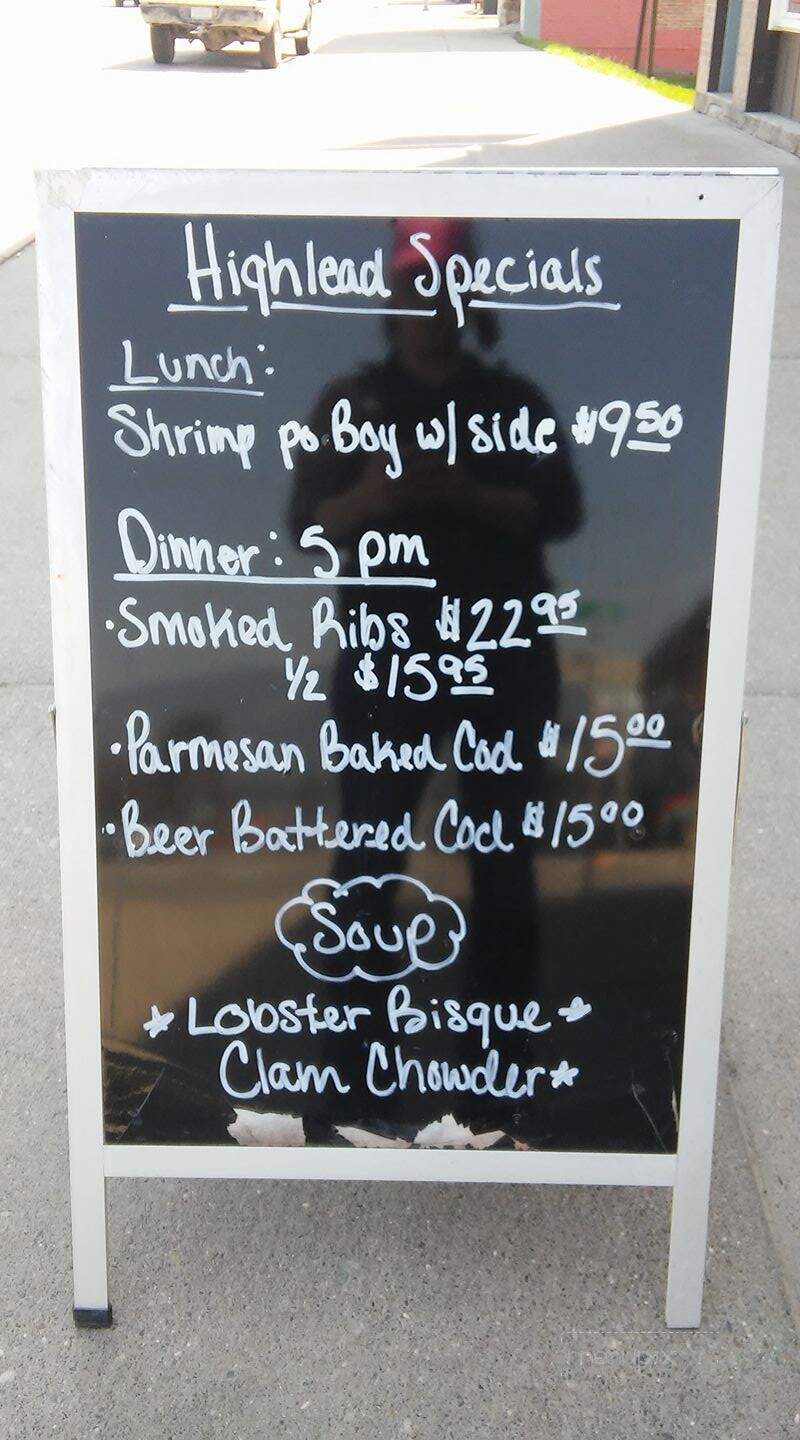 Highlead Specials
Lunch:
Shrimp po Boy w/ side $9 50
Dinner: 5 pm
·Smoked Ribs $22 95
1/2 $15 95
·Parmesan Baked Cod $15 00
·Beer Battered Cod $15 00
Soup
*Lobster Bisque*
Clam Chowder*
menupix